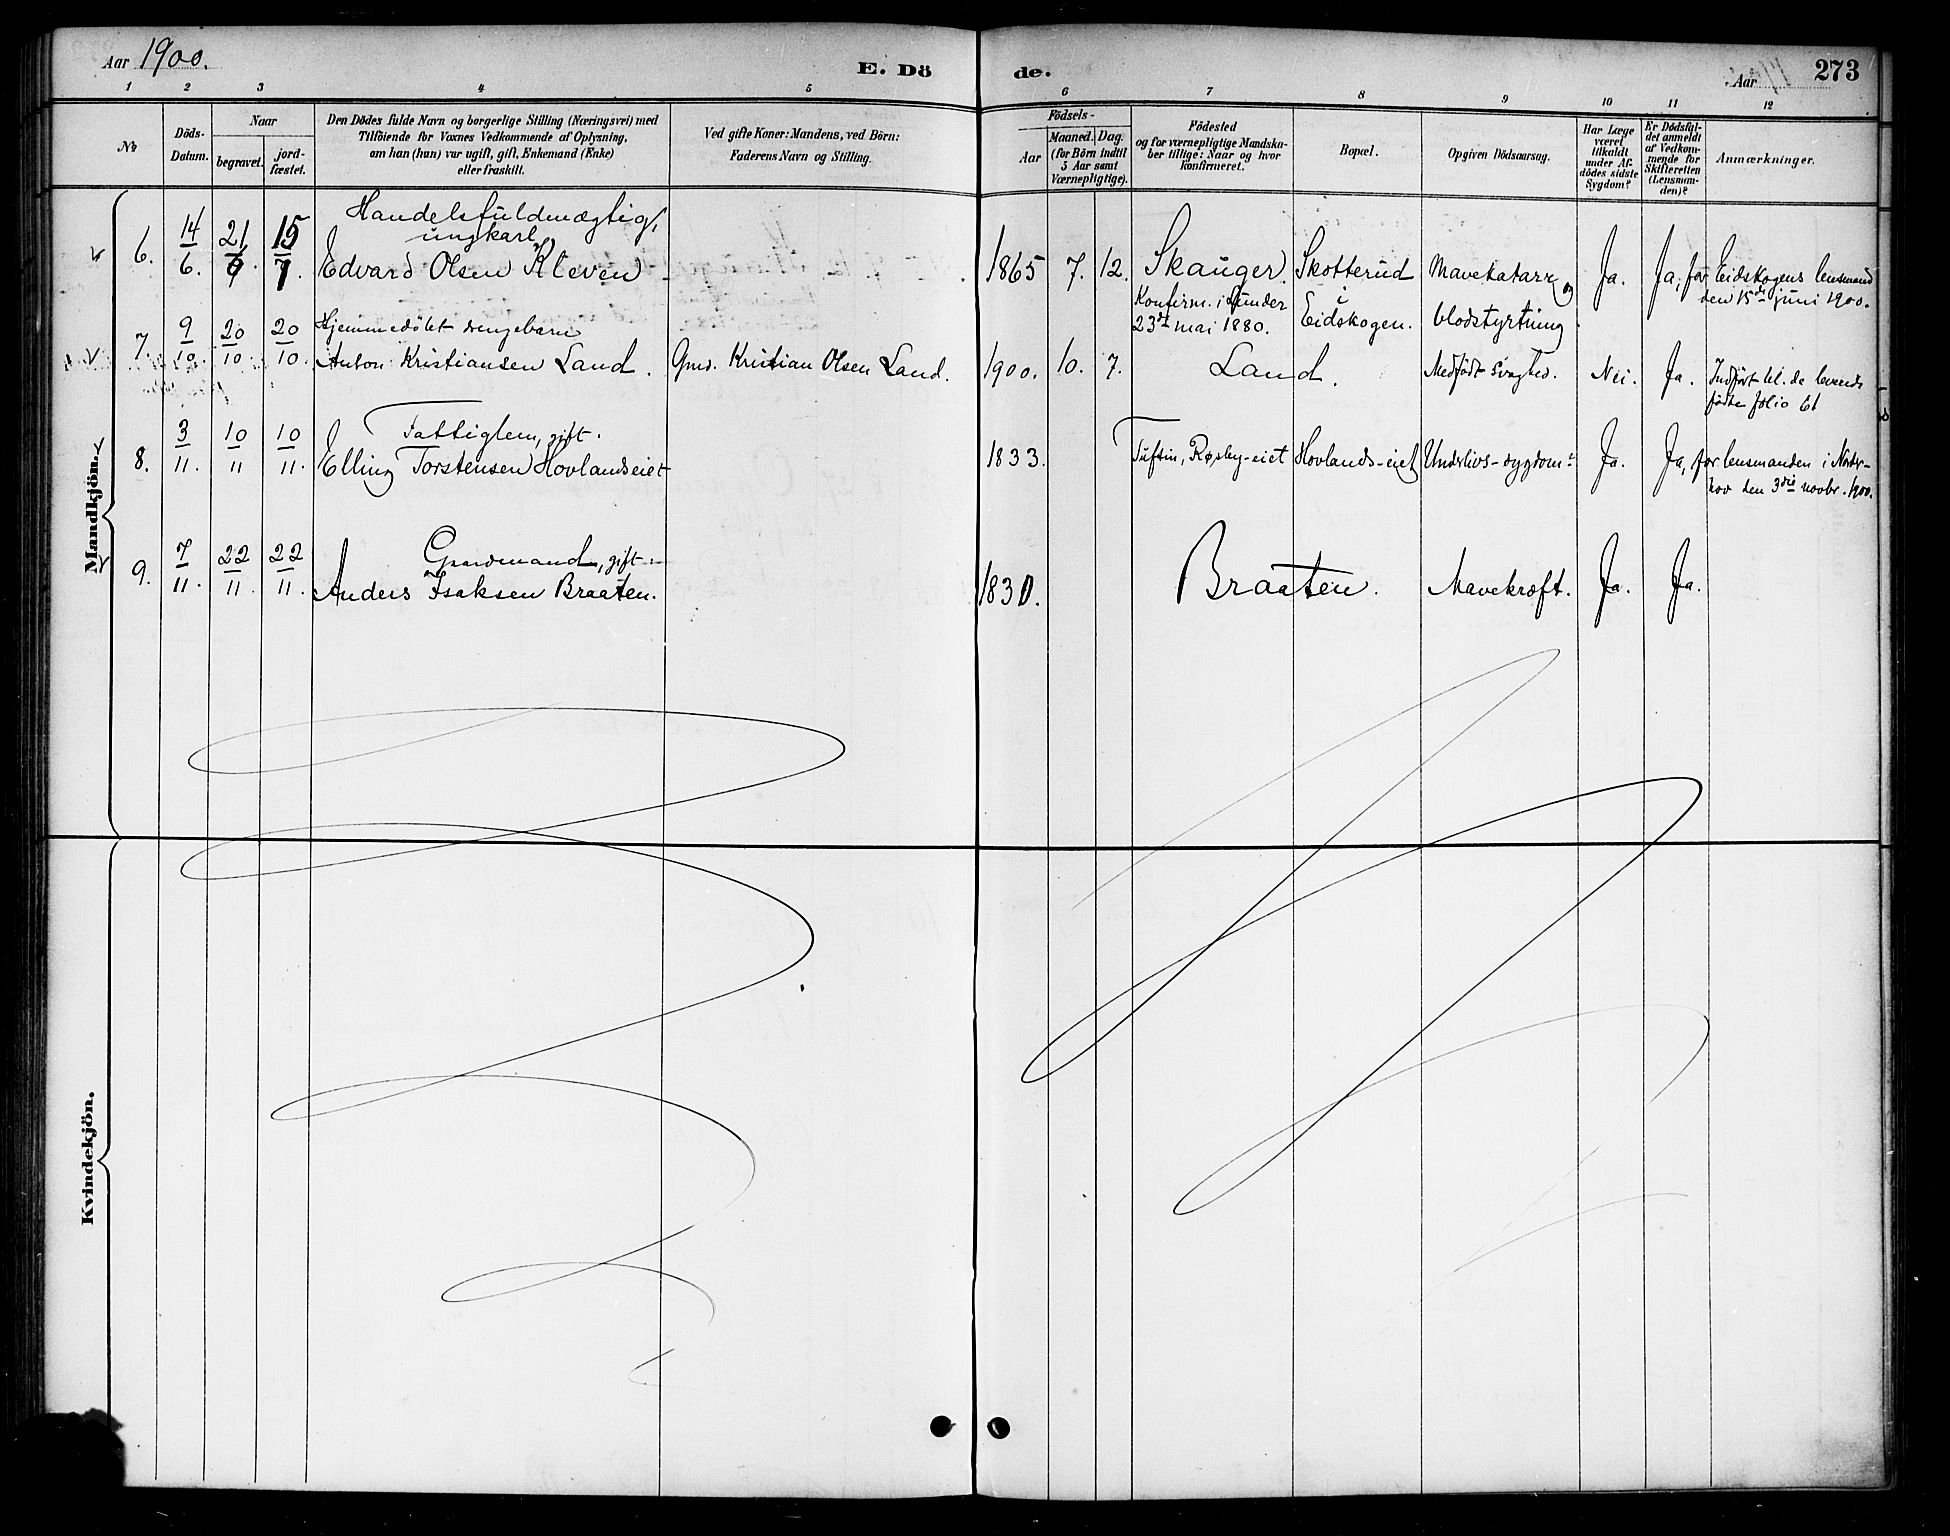 Aar 1900.
E. Dö
de.
Aar
273
1 2 3 4 5 6 7 8 9 10 11 12
№
Döds-Datum.
Naar
begravet.
jord-fæstet.
Den Dödes fulde Navn og borgerlige Stilling (Næringsvei) med
Tilföiende for Voxnes Vedkommende af Oplysning,
om han (hun) var ugift, gift, Enkemand (Enke)
eller fraskilt.
Ved gifte Koner: Mandens, ved Börn:
Faderens Navn og Stilling.
Födsels-
Aar
Maaned. Dag.
(for Börn indtil
5 Aar samt
Værnepligtige).
Födested
og for værnepligtige Mandska-
ber tillige: Naar og hvor
konfirmeret.
Bopæl.
Opgiven Dödsaarsag.
Har Læge
været
tilkaldt
under Af-
dödes sidste
Sygdom?
Er Dödsfal-
det anmeldt
af Vedkom-
mende for
Skifteretten
(Lensman-
den)?
Anmærkninger.
Mandkjön.
6. 14/6. 21/6. 15/7.
Handelsfuldmægtig,
ungkarl
Edvard Olsen Kleven
1865 7. 12.
Skauger.
Konfirm. i Lunder
23de mai 1880.
Skotterud
i
Eidskogen.
Mavekatarr og
blodstyrtning.
Ja.
Ja, for Eidskogens lensmand
den 15de juni 1900.
7. 9/10. 20/10 20/10.
Hjemmedöbt drengebarn
Anton Kristiansen Land.
Gmd. Kristian Olsen Land.
1900. 10. 7.
Land.
Medfödt svaghed.
Nei.
Ja.
Indfört bl. de levende
födte folio 61
8. 3/11. 10/11 10/11.
Fattiglem, gift.
Elling Torstensen Hovlandseiet
1833.
Tuftin, Røsby-eiet
Hovlands-eiet
Underlivs-sygdom
Ja.
Ja, for lensmanden i Norder-
hov den 3die novbr. 1900.
9. 7/11. 22/11. 22/11.
Gaardmand, gift
Anders Isaksen Braaten.
1830.
Braaten.
Mavekræft.
Ja.
Ja.
Kvindekjön.